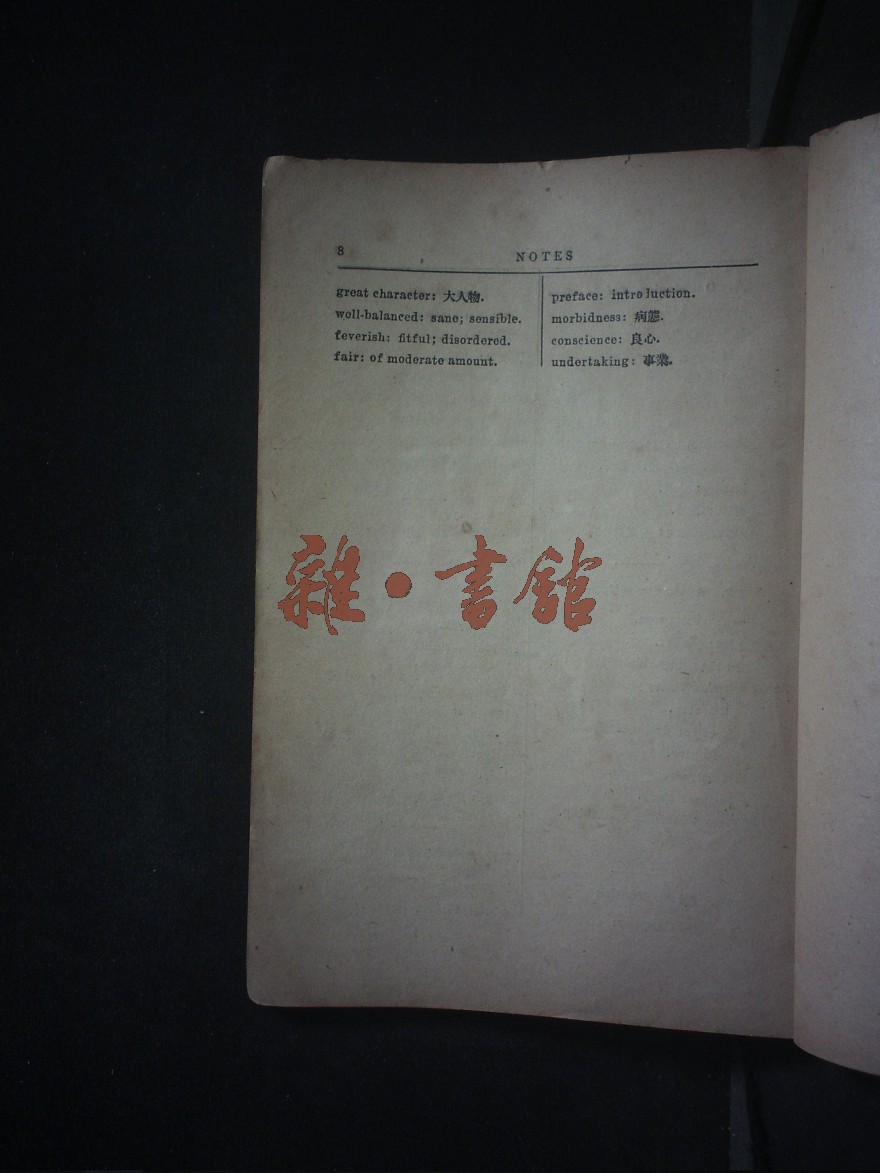 8
NOTES
great character: 大人物.
well-balanced: sane; sensible.
feverish: fitful; disordered.
fair: of moderate amount.
preface: introduction.
morbidness: 病態.
conscience: 良心.
undertaking: 事業.
雜·書館